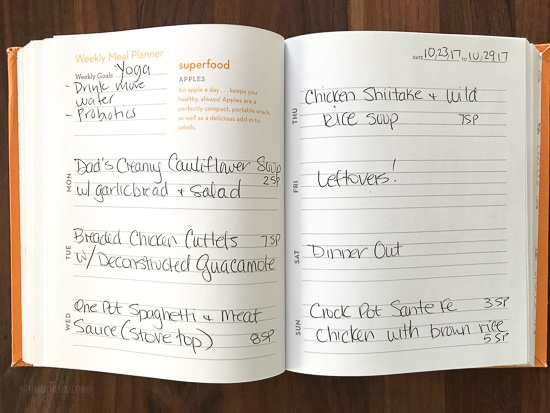 Weekly Meal Planner
Weekly Goals Yoga
- Drink more
water
- Probotics
superfood
APPLES
An apple a day . . . keeps you
healthy, always! Apples are a
perfectly compact, portable snack,
as well as a delicious add-in to
salads.
MON
Dad's Creamy Cauliflower Soup
2SP
w/ garlicbread + salad
TUE
Breaded Chicken Cutlets 7SP
w/ Deconstructed Guacamole
WED
One Pot Spaghetti + Meat
Sauce (stove top) 8SP
DATE 10,23,17 TO 10,29,17
THU
Chicken Shiitake + Wild
Rice Soup 7SP
FRI
Leftovers!
SAT
Dinner Out
SUN
Crock Pot Sante Fe 3SP
Chicken with brown rice
5SP